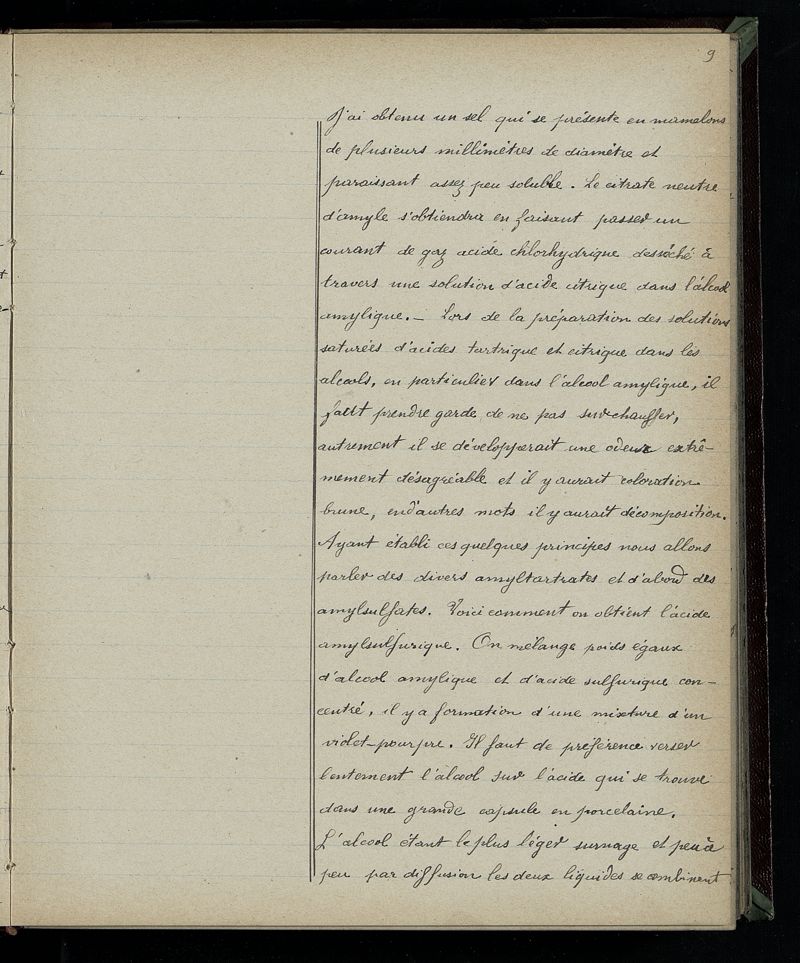 9
J'ai obtenu un sel qui se présente en mamelons
de plusieurs millimètres de diamètre et
paraissant assez peu soluble. Le citrate neutre
d'amyle s'obtiendra en faisant passer un
courant de gaz acide chlorhydrique desséché à
travers une solution d'acide citrique dans l'alcool
amylique. — Lors de la préparation des solutions
saturées d'acides tartrique et citrique dans les
alcools, en particulier dans l'alcool amylique, il
faut prendre garde de ne pas surchauffer,
autrement il se développerait une odeur extrê-
mement désagréable et il y aurait coloration
brune, end'autres mots il y aurait décomposition.
Ayant établi ces quelques principes nous allons
parler des divers amyltartrates et d'abord des
amylsulfates. Voici comment on obtient l'acide
amylsulfurique. On mélange poids égaux
d'alcool amylique et d'acide sulfurique con-
centré, il y a formation d'une mixture d'un
violet-pourpre. Il faut de préférence verser
lentement l'alcool sur l'acide qui se trouve
dans une grande capsule en porcelaine.
L'alcool étant le plus léger surnage et peu à
peu par diffusion les deux liquides se combinent